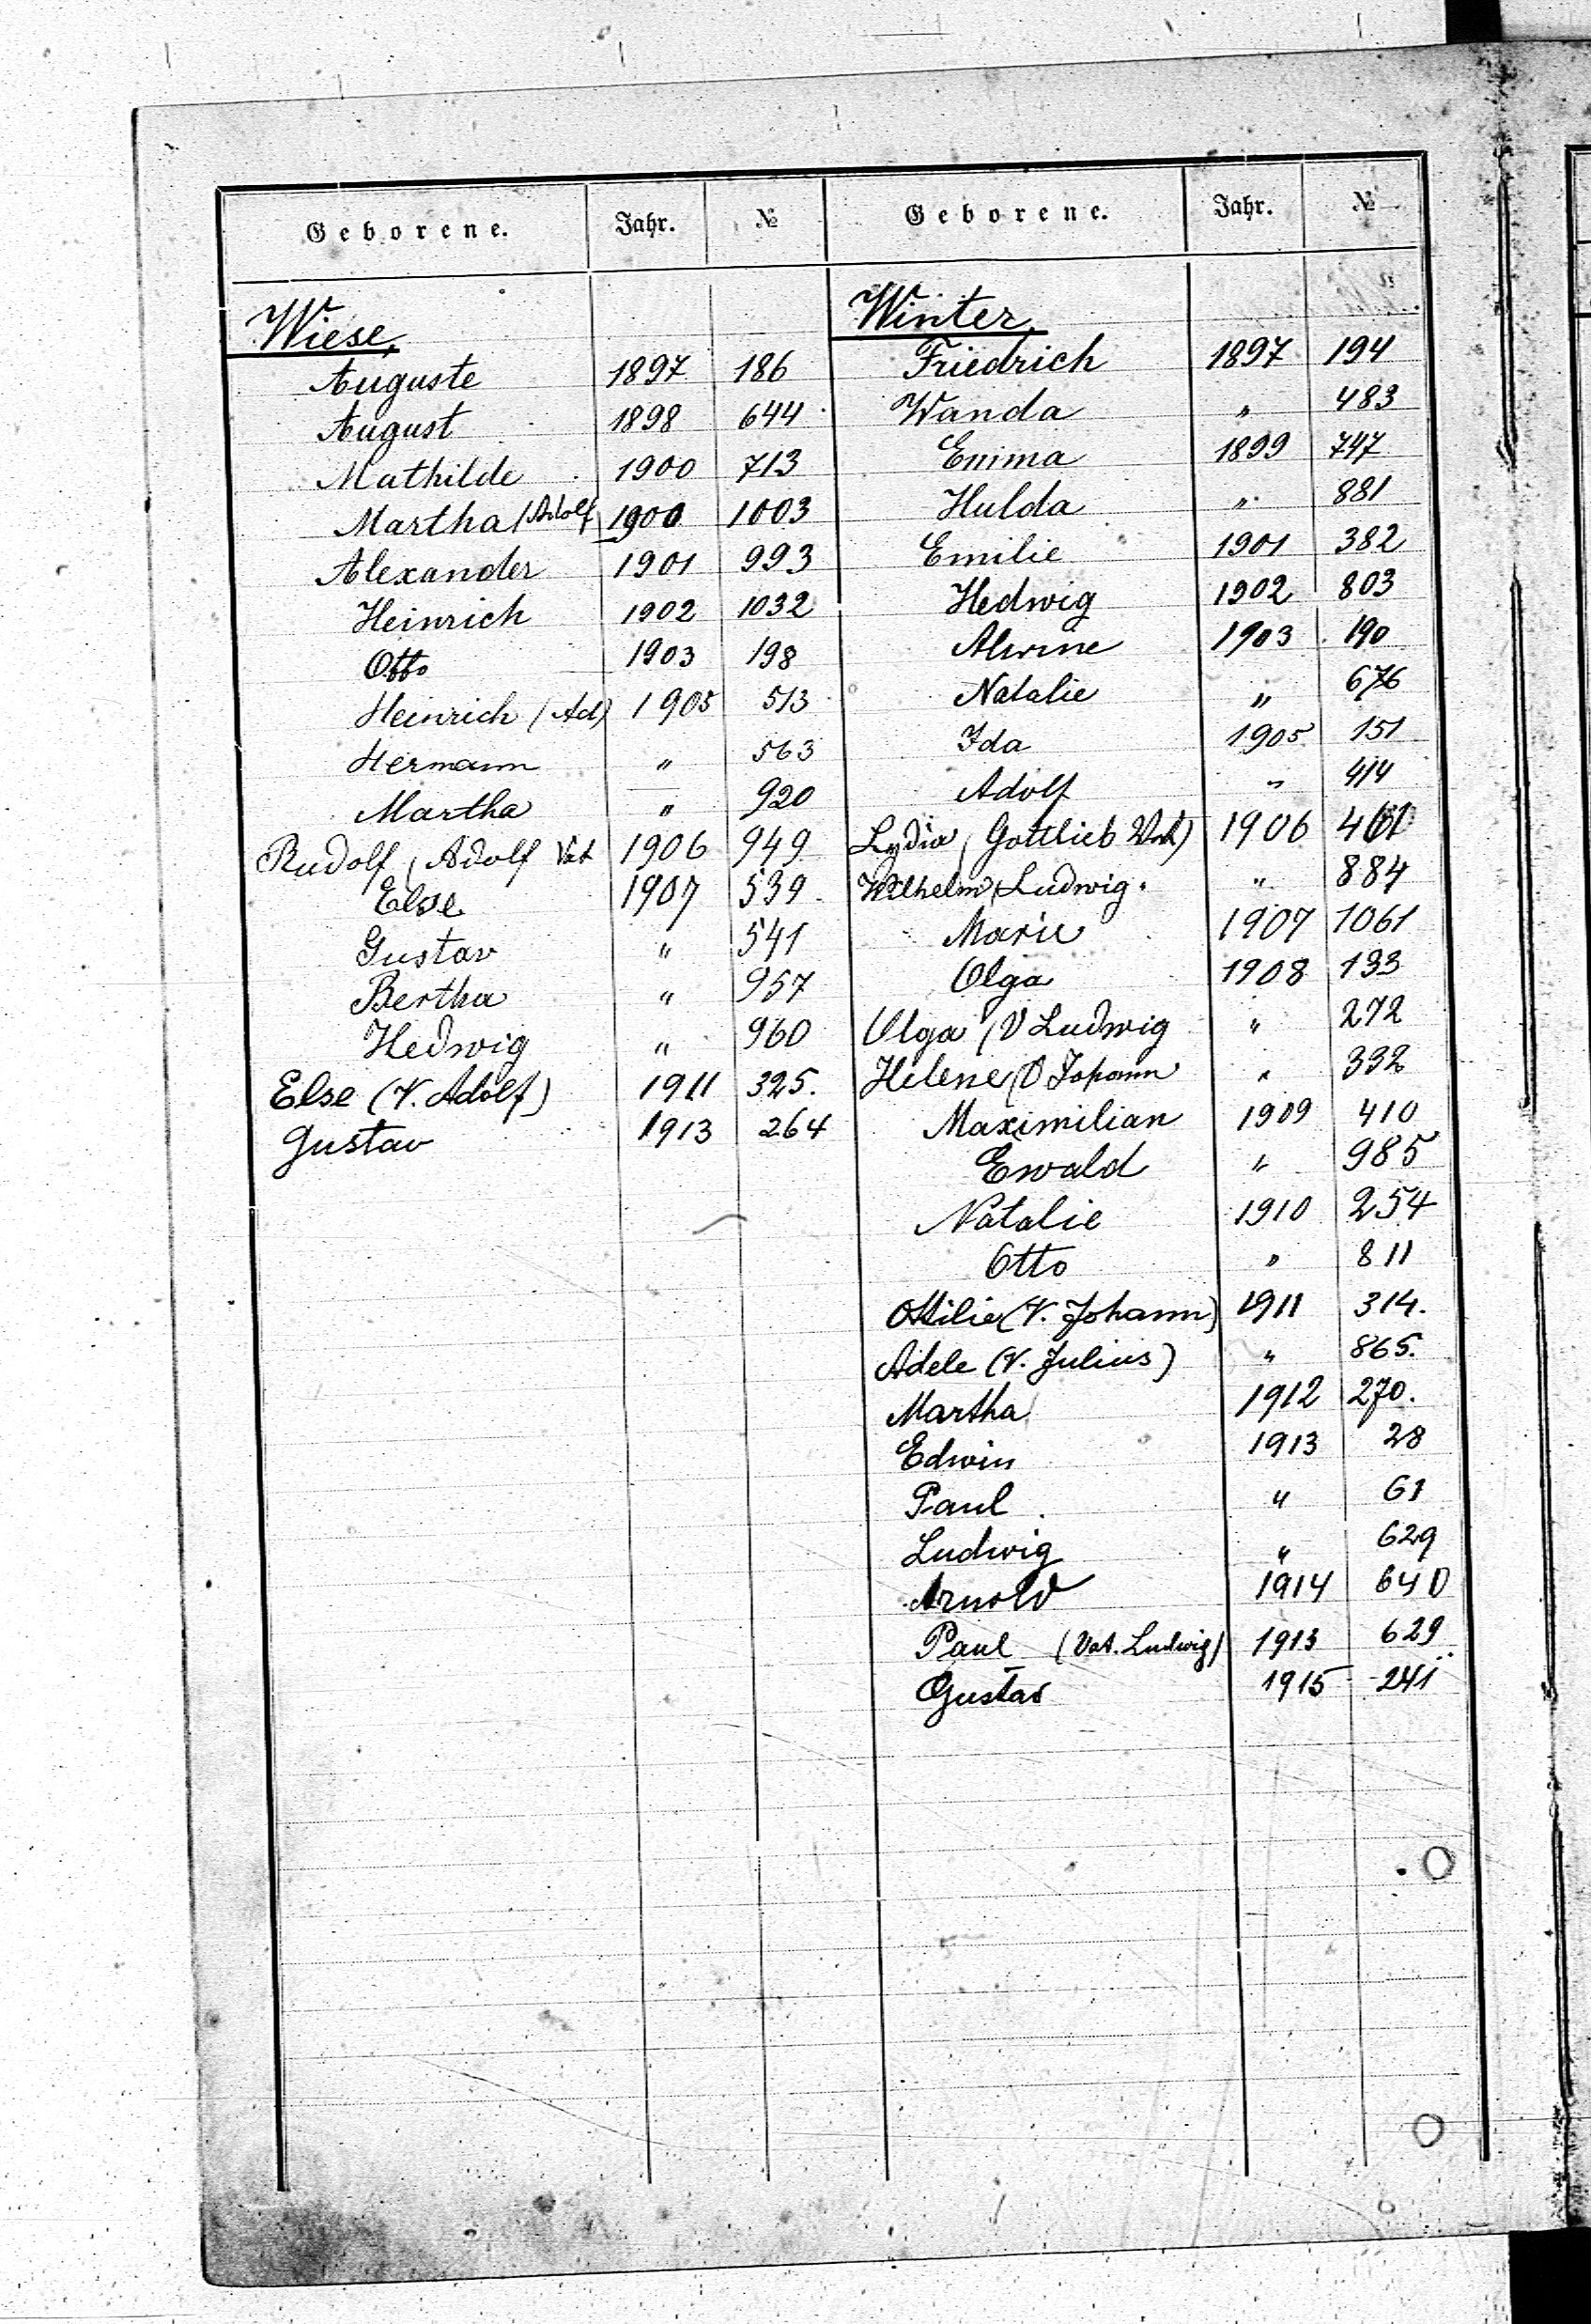 Geborene. Jahr. №
Wiese,
Auguste 1897 186
August 1898 644
Mathilde 1900 713
Martha (Adolf) 1900 1003
Alexander 1901 993
Heinrich 1902 1032
Otto 1903 198
Heinrich (Ad) 1905 513
Hermann " 563
Martha " 920
Rudolf (Adolf Vat 1906 949
Else 1907 539
Gustav " 541
Bertha " 957
Hedwig " 960
Else (V. Adolf) 1911 325.
Gustav 1913 264
Geborene. Jahr. №
Winter,
Friedrich 1897 194
Wanda " 483
Emma 1899 747
Hulda " 881
Emilie 1901 382
Hedwig 1902 803
Alwine 1903 190
Natalie " 676
Ida 1905 151
Adolf " 414
Lydia (Gottlieb Vat) 1906 461
Wilhelm (Ludwig " 884
Marie 1907 1061
Olga 1908 133
Olga (V Ludwig " 272
Helene (V Johann " 332
Maximilian 1909 410
Ewald " 985
Natalie 1910 254
Otto " 811
Ottilie (V. Johann) 1911 314.
Adele (V. Julius) " 865.
Martha 1912 270.
Edwin 1913 28
Paul " 61
Ludwig " 629
Arnold 1914 640
Paul (Vat. Ludwig) 1913 629
Gustav 1915 241